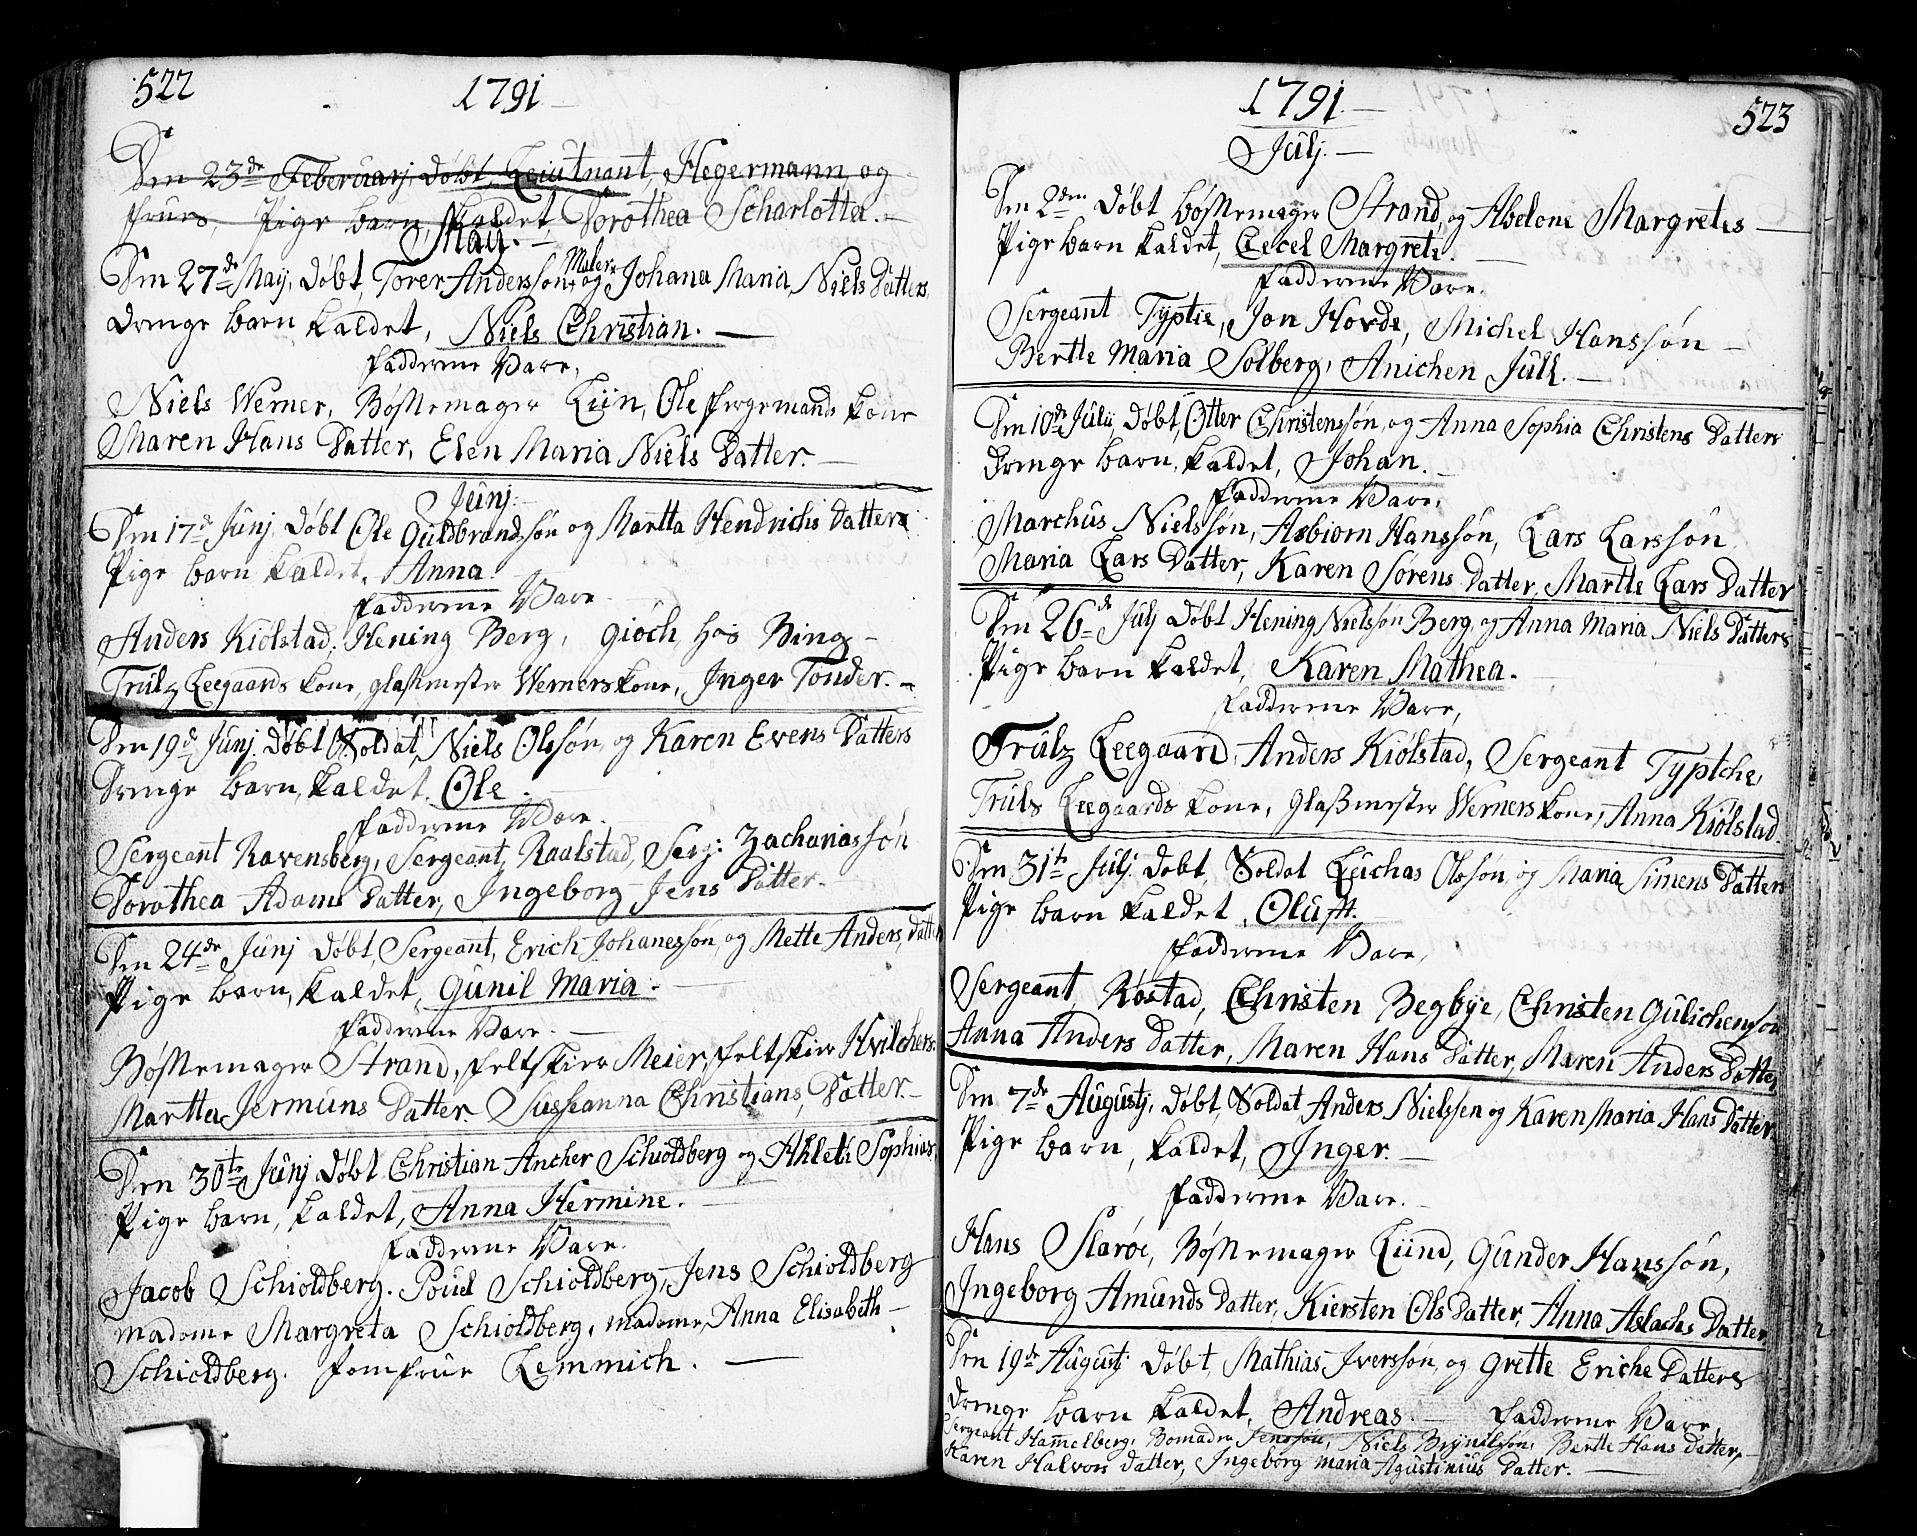 522
1791
Den 23de Feberuarj, døbt, Leiutnant, Hegermann og
frues, Pige barn, kaldet, Dorothea Scharlotta.
Maij.
Den 27de Maij, døbt, Torer Anderssøn, Maler og Johana Maria, Niels Datters
Drenge barn kaldet, Niels Christian.
Fadderne Vare,
Niels Werner, Bøssemager Liin, Ole fergemands kone
Maren Hans Datter, Elen Maria Niels Datter.
Junj.
Den 17de Junj, Døbt Ole Guldbrandsøn og Martta Hendrichs Datters
Pige barn kaldet, Anna.
Fadderne Vare
Anders Kiølstad, Hening Berg, gioch hos Bing
Trulz Leegaards kone, glaßmester Werners kone, Inger Tonder.
Den 19de Junj. Døbt Soldat, Niels Olssøn, og Karen Evens Datters
Drenge barn, kaldet, Ole.
Fadderne Vare.
Sergeant Ravensberg, Sergeant, Raalstad, Serj: Zachariassøn
Dorothea Adams Datter, Ingeborg Jens Datter.
Den 24de Junj Døbt, Sergeant, Erich Johanessøn, og Mette Anders, Datter
Pige barn, kaldet, Gunil Maria.
Fadderne Vare.
Bøssemager Strand, feltskier Meier, feltskier Hvilchers
Martta Jermuns Datter. Susseanna Christians, Datter.
Den 30te Junj Døbt Christian Ancher Schioldberg og Ahlet Sophias
Pige barn, kaldet, Anna Hermine.
Fadderne Vare.
Jacob Schioldberg. Pouel Schioldberg, Jens Schioldberg
madame Margreta Schioldberg, madame, Anna Elisabeth
Schioldberg. Jomfrue Lemmich.
1791.
523
Julj.
Den 2den Døbt bøssemager Strand, og Abelone Margretes
Pige barn kaldet, Cecel Margrete.
Fadderne Vare.
Sergeant Typtie, Jon Hovde, Michel Hanssøn
Bertte Maria Solberg, Anichen Jull.
Den 10de Julij Døbt, Otter Christenssøn, og Anna Sophia Christens Datters
Drenge barn, kaldet, Johan.
Fadderne Vare,
Marchus Nielssøn, Asbiorn Hanssøn, Lars Larssøn
Maria Lars Datter, Karen Sørens Datter, Martte Lars Datter
Den 26de Julj Døbt Hening Nielssøn Berg, og Anna Maria Niels Datters
Pige barn kaldet, Karen Mathea.
Fadderne Vare,
Trulz Leegaard, Anders Kiølstad, Sergeant Typtche,
Truls Leegaards kone, Glaßmester Werners kone, Anna Kiølstad.
Den 31te Julj. Døbt, Soldat Luchas Olssøn, og Maria Simens Datters
Pige barn kaldet, Oluff.
Fadderne Vare,
Sergeant, Røstad, Christen Begbye, Christen Gulichenssøn
Anna Anders Datter, Maren Hans Datter, Maren Anders Datter
Den 7de Augustj, Døbt, Soldat Anders Nielssen og Karen Maria Hans Datter
Pige barn, kaldet, Inger.
Fadderne Vare.
Hans Slarøe, Bøssemager Liind, Gunder Hanssøn,
Ingeborg Amunds Datter, Kiersten Ols Datter, Anna Aslachs Datter
Den 19de Augustj Døbt, Mathias Iverssøn, og Grette Erichs Datters
Drenge barn kaldet, Andreas. Fadderne Vare,
Sergeant Hammelberg, Jenssøn, Niels Brynilsøn, Bertte Hans Datter,
Karen Halvors Datter, Ingeborg maria Agustinius Datter.